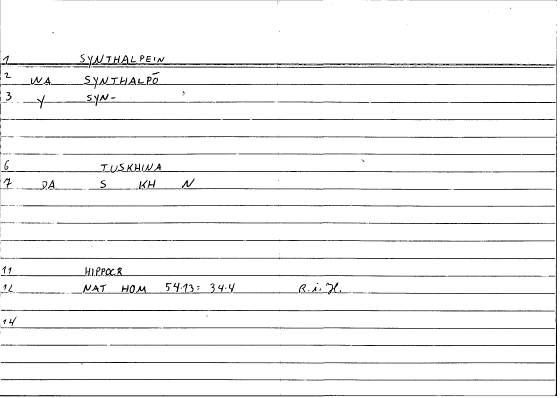 1 SYNTHALPEIN
2 WA SYNTHALPŌ
3 Y SYN-
6 TUSKHINA
7 DA S KH N
11 HIPPOCR
12 NAT HOM 54.13 = 34.4 R.i.H.
14